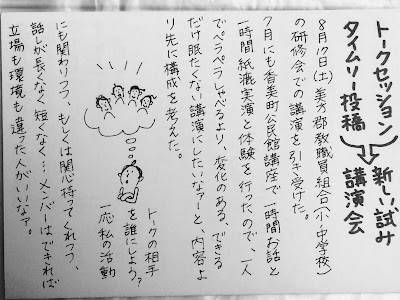 トークセッション 新しい試み
タイムリー投稿 講演会
8月17日(土)美方郡教職員組合(小中学校)
の研修会での講演を引き受けた。
7月にも香美町公民館講座で一時間お話と
一時間紙漉実演と体験を行ったので、一人
でペラペラしゃべるより、変化のある、できる
だけ眠たくない講演にしたいなァーと、内容よ
り先に構成を考えた。
トークの相手
を誰にしよう?
一応私の活動
にも関わりつつ、もしくは関心持ってくれつつ、
話しが長くなく短くなく…メンバーはできれば
立場も環境も違った人がいいなァ。